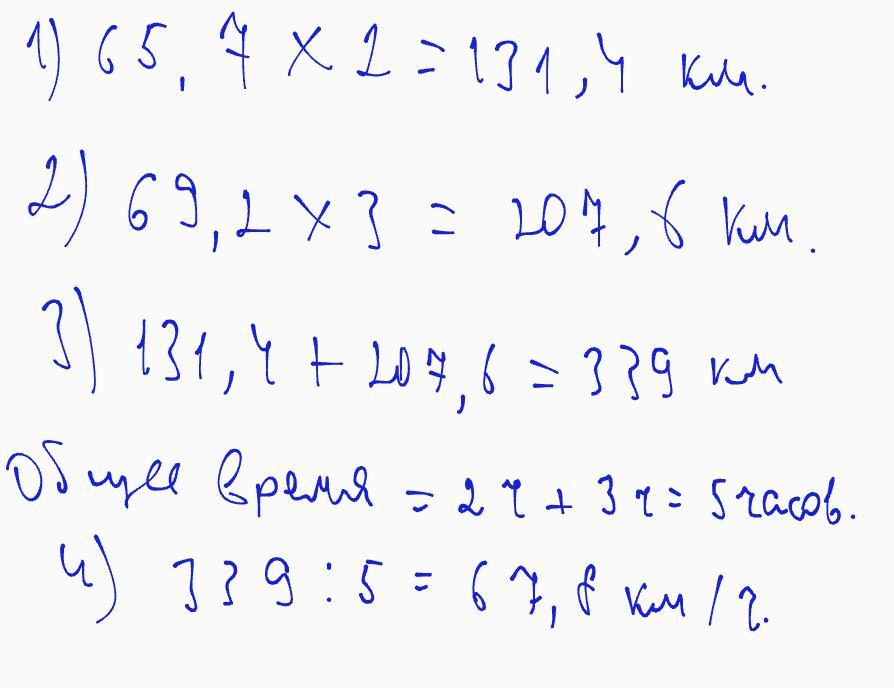 1) 65,7 × 2 = 131,4 км.
2) 69,2 × 3 = 207,6 км.
3) 131,4 + 207,6 = 339 км
Общее время = 2 ч + 3 ч = 5 часов.
4) 339 : 5 = 67,8 км/ч.